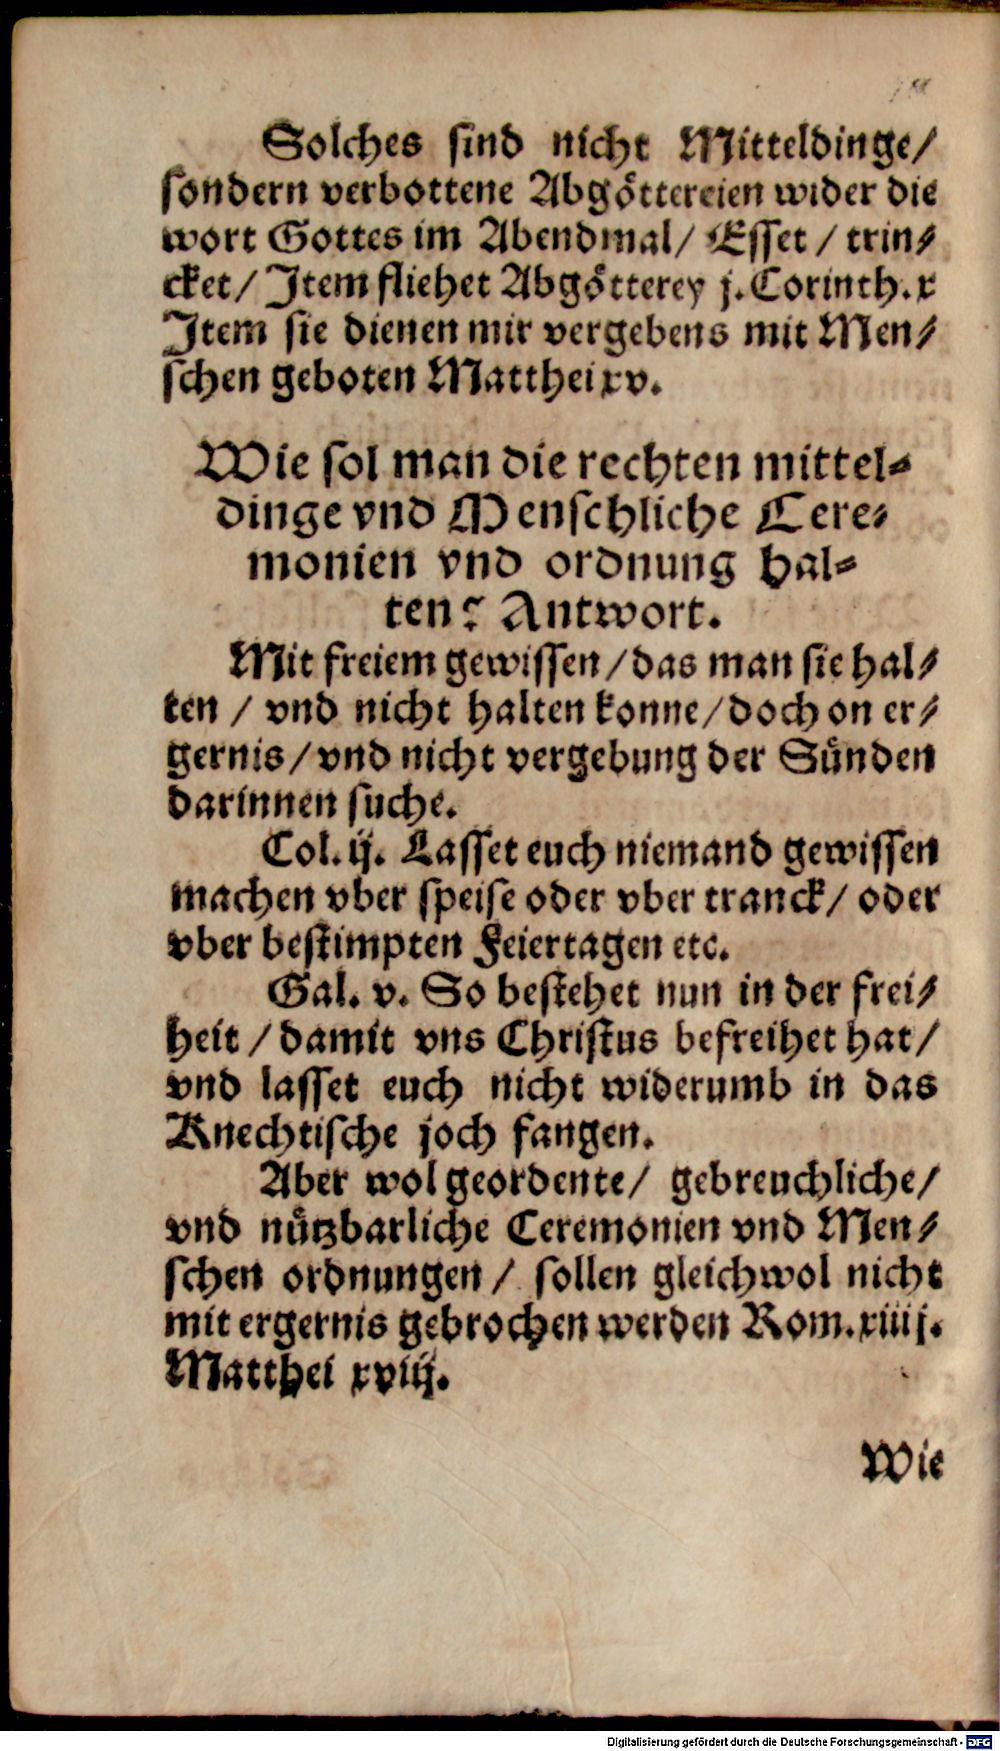 Solches sind nicht Mitteldinge/
sondern verbottene Abgöttereien wider die
wort Gottes im Abendmal/ Esset / trin⸗
cket/ Item fliehet Abgötterey j. Corinth. x
Item sie dienen mir vergebens mit Men⸗
schen geboten Matthei xv.
Wie sol man die rechten mittel⸗
dinge vnd Menschliche Cere⸗
monien vnd ordnung hal⸗
ten? Antwort.
Mit freiem gewissen / das man sie hal⸗
ten / vnd nicht halten konne/ doch on er⸗
gernis / vnd nicht vergebung der Sünden
darinnen suche.
Col. ij. Lasset euch niemand gewissen
machen vber speise oder vber tranck/ oder
vber bestimpten Feiertagen etc.
Gal. v. So bestehet nun in der frei⸗
heit / damit vns Christus befreihet hat/
vnd lasset euch nicht widerumb in das
Knechtische joch fangen.
Aber wol geordente/ gebreuchliche/
vnd nützbarliche Ceremonien vnd Men⸗
schen ordnungen / sollen gleichwol nicht
mit ergernis gebrochen werden Rom. xiiij.
Matthei xviij.
Wie
Digitalisierung gefördert durch die Deutsche Forschungsgemeinschaft - DFG